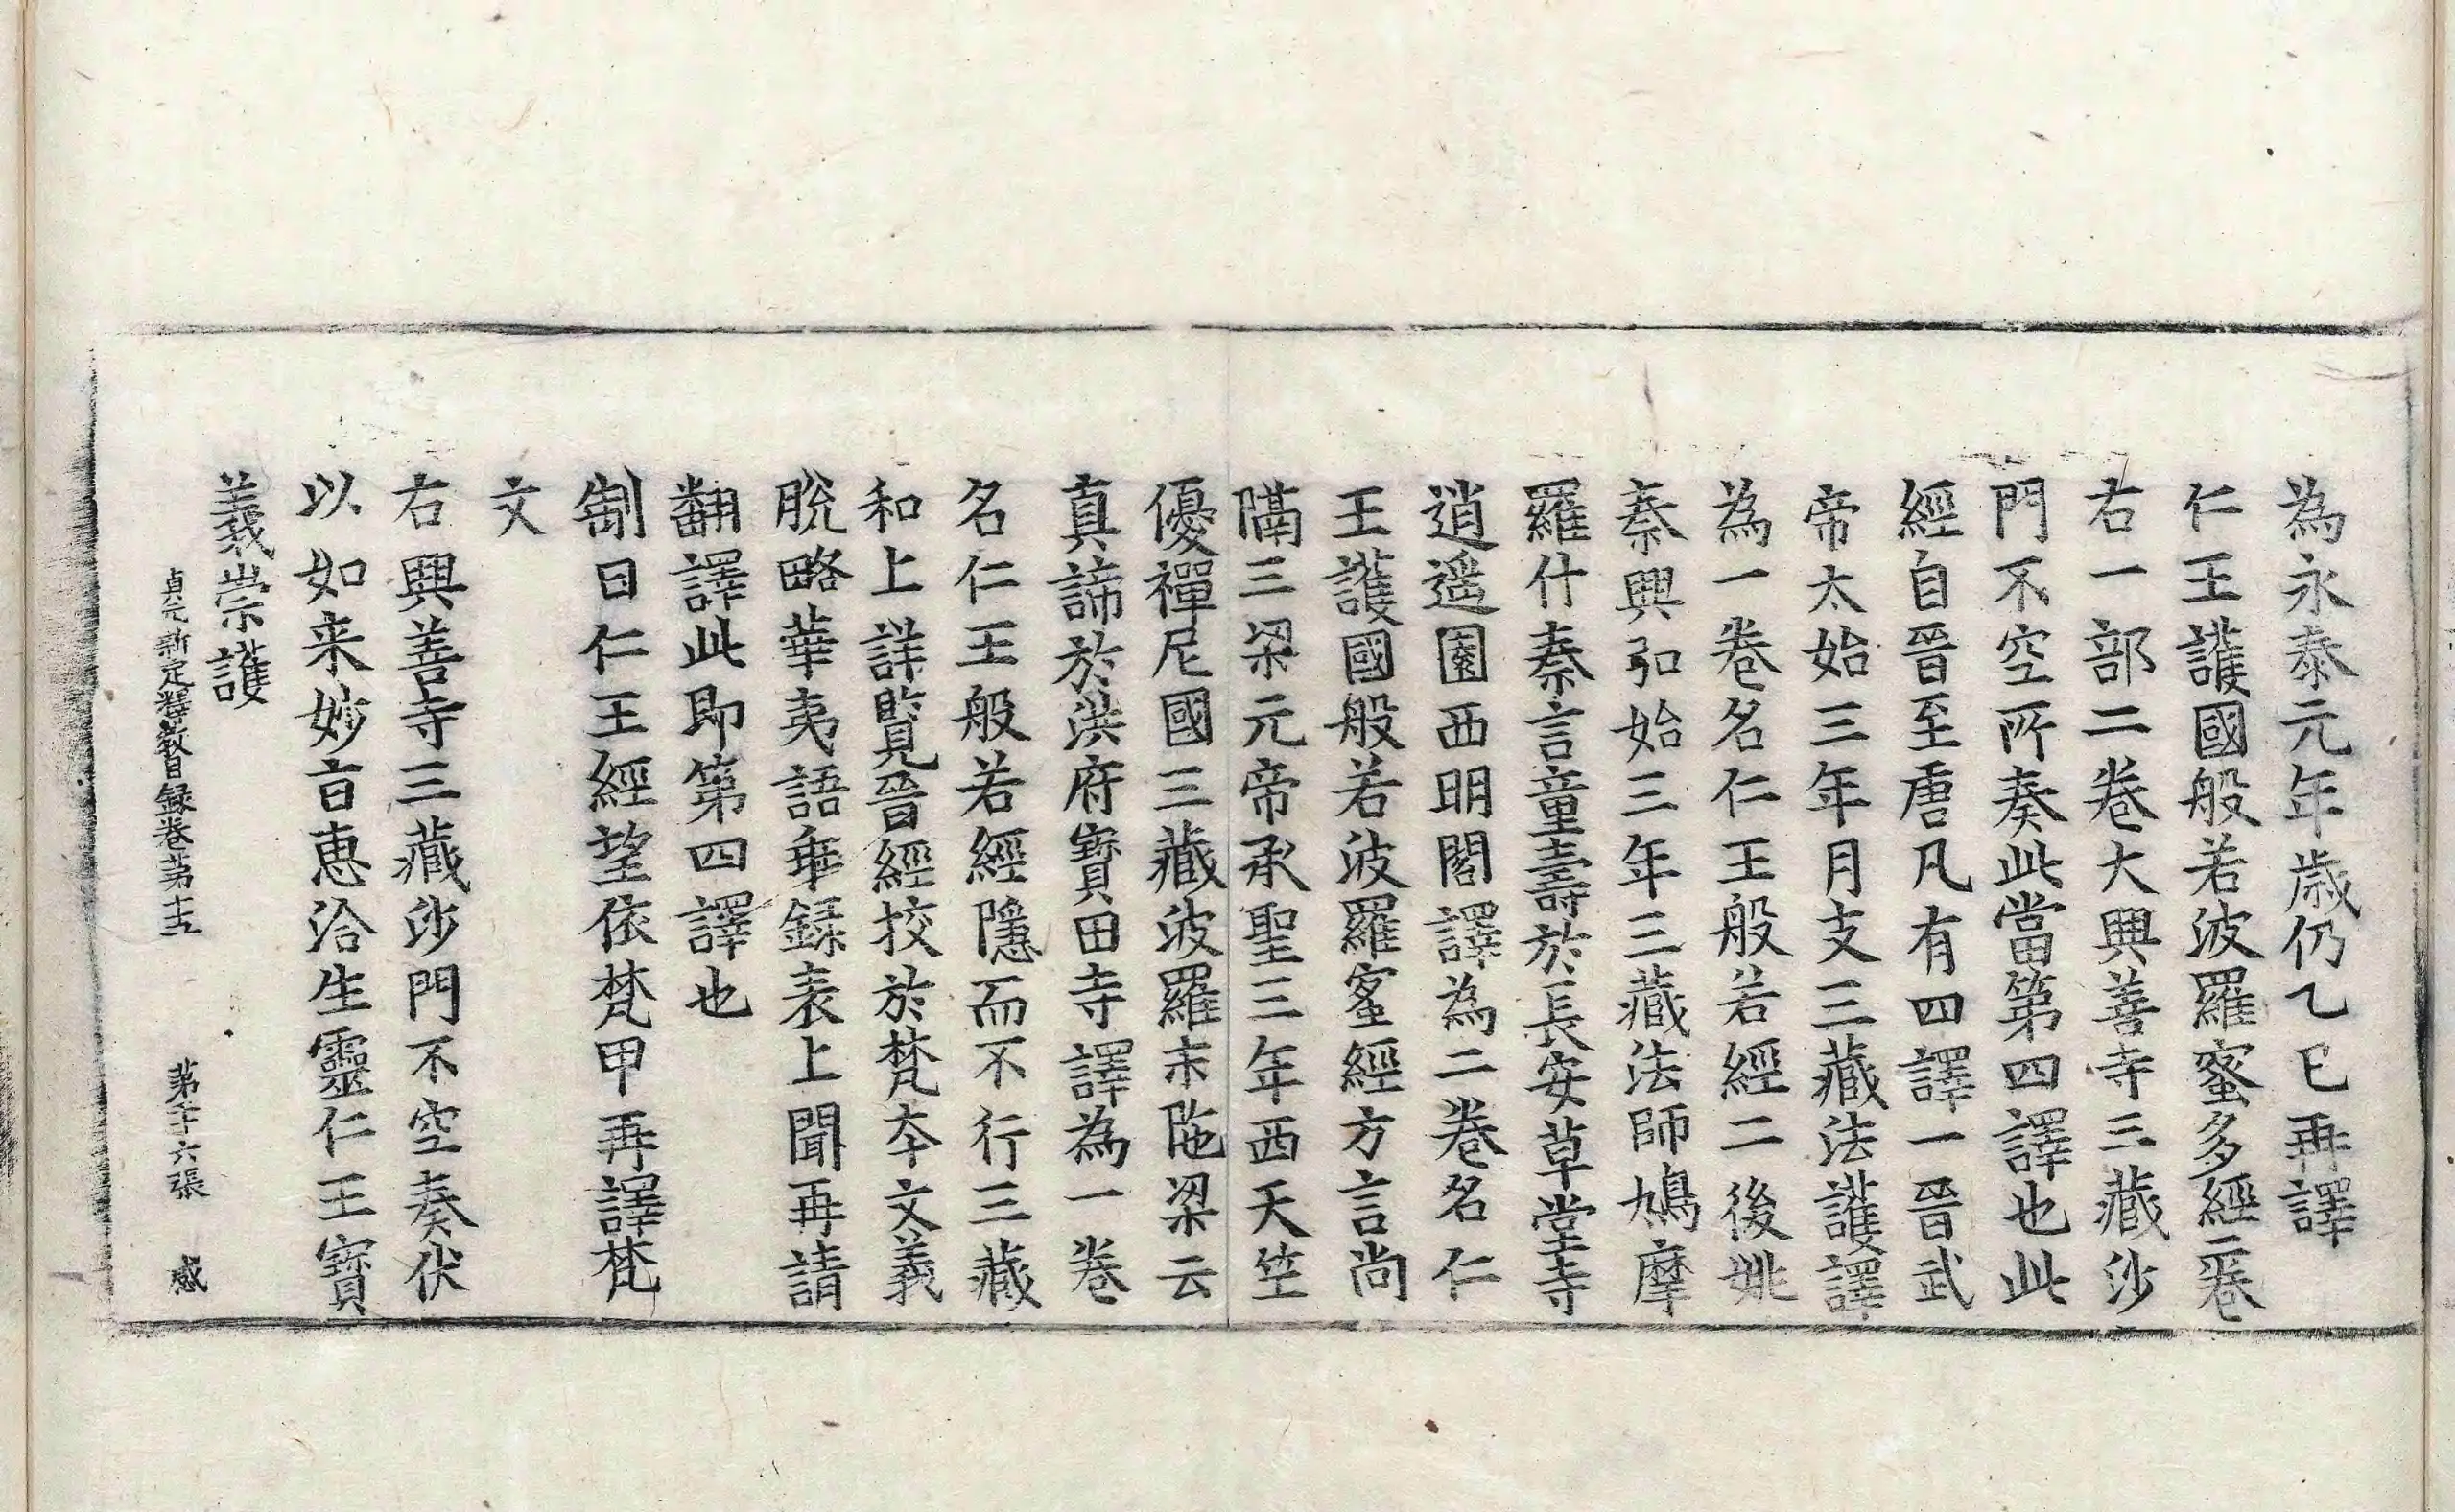 為永泰元年歳仍乙巳再譯
仁王護國般若波羅蜜多經二卷
右一部二卷大興善寺三藏沙
門不空所奏此當第四譯也此
經自晉至唐凡有四譯一晉武
帝太始三年月支三藏法護譯
為一卷名仁王般若經二後姚
秦興弘始三年三藏法師鳩摩
羅什秦言童壽於長安草堂寺
逍遥園西明閣譯為二卷名仁
王護國般若波羅蜜經方言尚
隔三梁元帝承聖三年西天竺
優禪尼國三藏波羅末陁梁云
真諦於洪府寳田寺譯為一卷
名仁王般若經隱而不行三藏
和上詳覧晉經挍於梵夲文義
脫略華夷語乖録表上聞再請
翻譯此即第四譯也
制曰仁王經望依梵甲再譯梵
文
右興善寺三藏沙門不空奏伏
以如来妙旨恵洽生靈仁王寳
義崇護
貞元新定釋教目録卷苐十五 苐二十六張 感